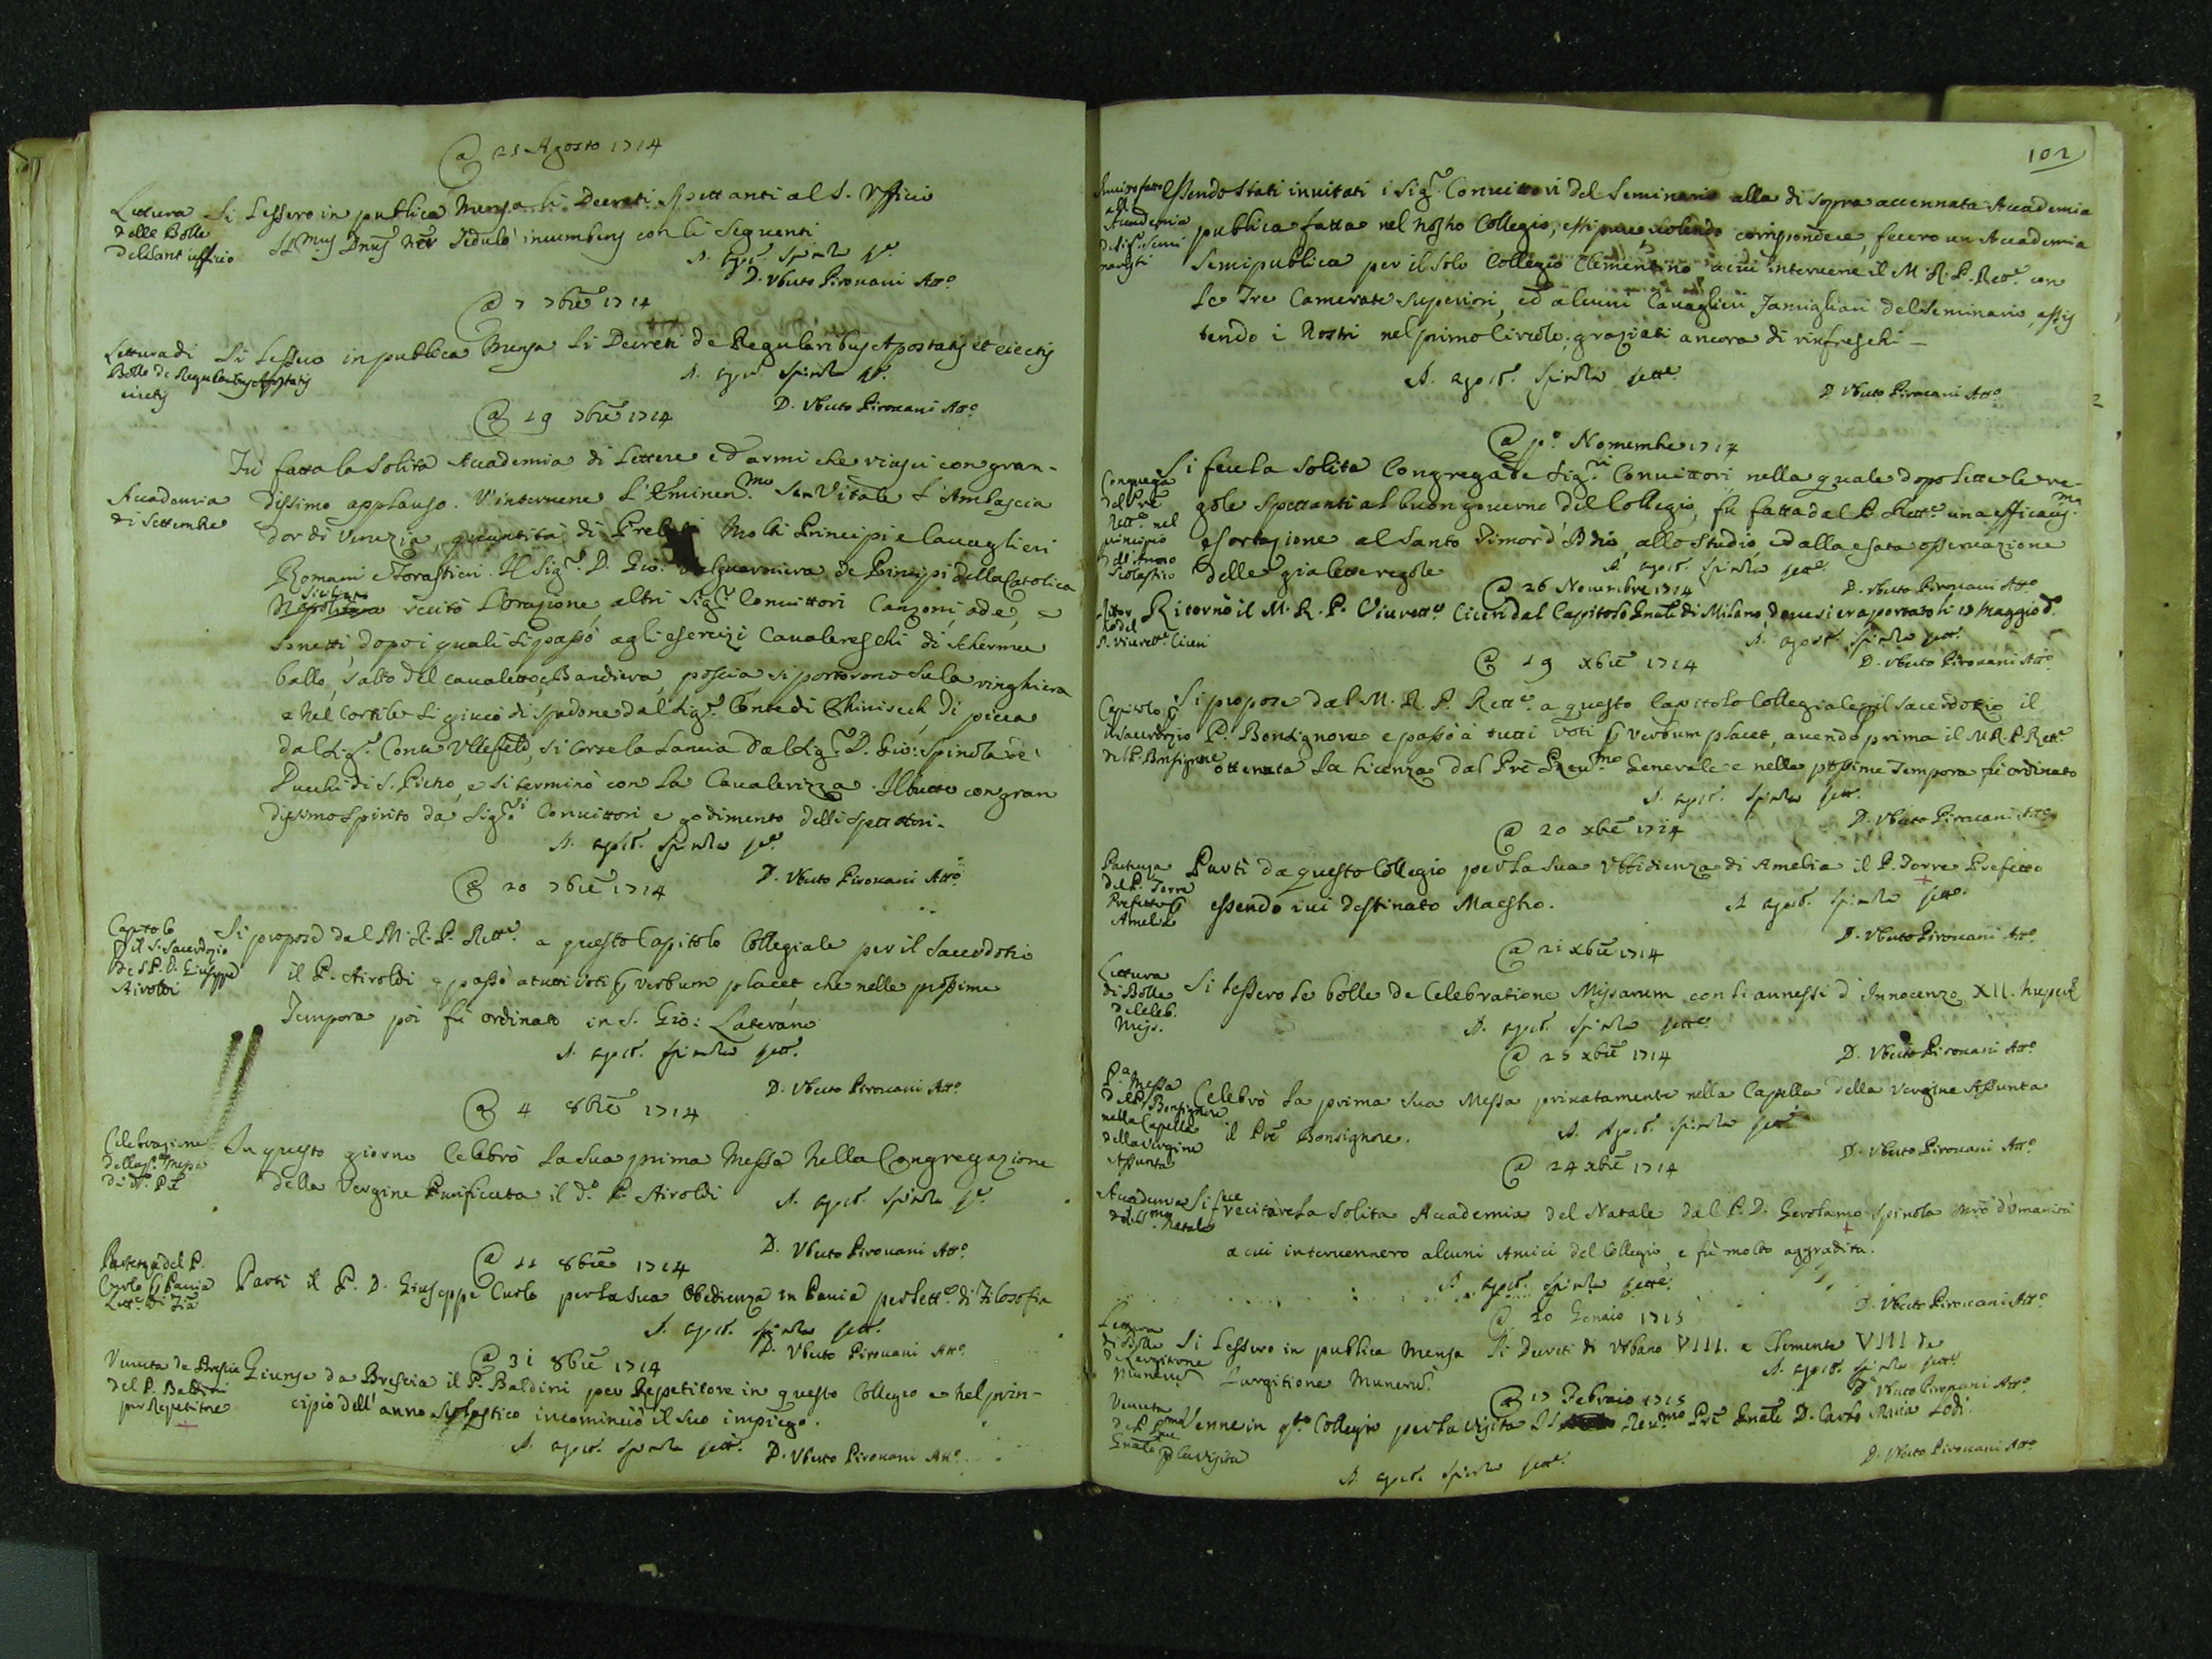 @ 25 Agosto 1714
Lettura
delle Bolle
del Sant ufficio
Si Lessero in publica Mensa li Decreti Spettanti al S. Ufficio
SSmus Dnus Nēr Sedulo incumbens con li Seguenti
A. Agost. Spinola
D. Vberto Pirovani Atto
@ 7 7bre 1714
Lettura di
Bolle de Regularibus Apostatis
eiectis
Si Lessero in publica Mensa Li Decreti de Regularibus Apostatis et eiectis
A. Agost. Spinola
D. Vberto Pirovani Atto
@ 19 7bre 1714
Accademia
di Settembre
Fù fatta la Solita Accademia di Lettere ed armi che riuscì con gran-
dissimo applauso. V'intervene L'Eminen.mo San Vitale L'Ambascia
dor di Venezia, quantità di Prelati Molti Principi e Cavaglieri
Romani e Forastieri. Il Sig.r D. Gio: Valguarniera de Principi della Catolica
Siciliano
Napolitano recitò L'Orazione, altri Sig.ri Convittori Canzoni, ode, e
Sonetti, dopo i quali si passò agli esercizi Cavalereschi di Scherma
ballo, Salto del cavaletto, e Bandiera, poscia si portorono su la ringhiera
e Nel Cortile Si giucò di Spadone dal Sig.r Conte di Chinisech, Di picca
dal Sig.r Conte Vllefeld, si corse la Lancia Dal Sig.r D. Gio: Spinola de'
Duchi di S. Pietro, e si terminò con La Cavalerizza. Il tutto con gran
dissimo Spirito da Sig.ri Convittori e godimento delli Spettatori.
A. Agost. Spinola
D. Vberto Pirovani Atto
@ 20 7bre 1714
Capitolo
p il S. Sacerdozio
del P. D. Giuseppe
Airoldi
Si propose dal M. R. P. Rett.e a questo Capitolo Collegiale per il Sacerdotio
il P. Airoldi e passò a tutti voti p verbum placet, che nelle prossime
Tempora poi fù ordinato in S. Gio: Laterano
A. Agost. Spinola Rett.
D. Vberto Pirovani Atto
@ 4 8bre 1714
Celebrazione
della p.a Messa
di d.o P.
In questo giorno Celebrò La Sua prima Messa Nella Congregazione
della Vergine Purificata il d.o P. Airoldi
A. Agost. Spinola
D. Vberto Pirovani Atto
@ 11 8bre 1714
Partenza del P.
Curlo p Pavia
Lett.e di Fia
Partì il P. D. Giuseppe Curlo per La Sua Obedienza in Pavia per Lett.e di Filosofia
A. Agost. Spinola Rett.
D. Vberto Pirovani Atto
@ 31 8bre 1714
Venuta da Brescia
del P. Baldini
per Repetitore
Giunse da Brescia il P. Baldini per Repetitore in questo Collegio e nel prin-
cipio dell'anno Scolastico incominciò il Suo impiego.
A. Agost. Spinola Rett.
D. Vberto Pirovani Atto
102
Accademia
Essendo Stati invitati i Sig.ri Convittori del Seminario alla di sopra accennata Accademia
publica fatta nel nostro Collegio, essi pure volendo corrispondere, fecero un Accademia
Semipublica per il Solo Collegio Clementino a cui intervene il M. R. P. Rett.e con
Le Tre Camerate Superiori, ed alcuni Cavaglieri Famigliari del Seminario, assis
tendo i Nostri nel primo Circolo, graziati ancora di rinfreschi —
A. Agost. Spinola Rett.e
D. Vberto Pirovani Atto
@ p.o Novembre 1714
Congrega
del Pre
Rett.e nel
principio
dell'Anno
Scolastico
Si fece la Solita Congrega de Sig.ri Convittori nella quale dopo Lette le re-
gole Spettanti al buon governo del Collegio, fù fatta dal P. Rett.e una efficaciss.ma
esortazione al Santo Timor d'Iddio, allo Studio, ed alla esata osservazione
delle gia lette regole
A. Agost. Spinola Rett.e
D. Vberto Pirovani Atto
@ 26 Novembre 1714
Ritor
no del
P. Vicerett.e Ciceri
Ritornò il M. R. P. Vicerett.e Ciceri dal Capitolo Gnale di Milano, dove si era portato li 17 Maggio d.o
A. Agost. Spinola Rett.
D. Vberto Pirovani Atto
@ 19 Xbre 1714
Capitolo p
il Sacerdozio
del P. Bonsignore
Si propose dal M. R. P. Rett.e a questo Capitolo Collegiale p il Sacerdozio il
P. Bonsignore e passò à tutti voti p verbum placet, avendo prima il M. R. P. Rett.e
ottenuta La Licenza dal Pre Rev.mo Generale e nelle prossime Tempora fù ordinato
A. Agost. Spinola Rett.
D. Vberto Pirovani Atto
@ 20 Xbre 1714
Partenza
del P. Torre
Prefetto p
Amelia
Partì da questo Collegio per La Sua Vbbidienza di Amelia il P. Torre Prefetto
essendo ivi destinato Maestro.
A. Agost. Spinola Rett.e
D. Vberto Pirovani Atto
@ 21 Xbre 1714
Lettura
di Bolle
de Celeb.
Miss.
Si Lessero Le bolle de Celebratione Missarum con li annessi d'Innocenzo XII.
A. Agost. Spinola Rett.e
D. Vberto Pirovani Atto
@ 25 Xbre 1714
P.a Messa
del P. Bonsignore
nella Capella
della Vergine
Assunta
Celebrò La prima Sua Messa privatamente nella Capella della Vergine Assunta
il Pre Bonsignore.
A. Agost. Spinola Rett.e
D. Vberto Pirovani Atto
@ 24 Xbre 1714
Accademia
del SS.mo Natale
Si fece recitare La Solita Accademia del Natale dal P. D. Gerolamo Spinola Mro d'Umanità
a cui intervennero alcuni Amici del Collegio, e fù molto aggradita.
A. Agost. Spinola Rett.e
D. Vberto Pirovani Atto
@ 20 Genaio 1715
Lettura
di Bolle
de Largitione
Munerum
Si Lessero in publica Mensa Li Decreti di Vrbano VIII. e Clemente VIII de
Largitione Munerum.
A. Agost. Spinola Rett.e
D. Vberto Pirovani Atto
@ 17 Febraio 1715
Venuta
del Rmo Pre
Gnale
p la Visita
Venne in q.to Collegio per La Visita Il Rev.mo Pre Gnale D. Carlo Maria Lodi.
A. Agost. Spinola Rett.e
D. Vberto Pirovani Atto